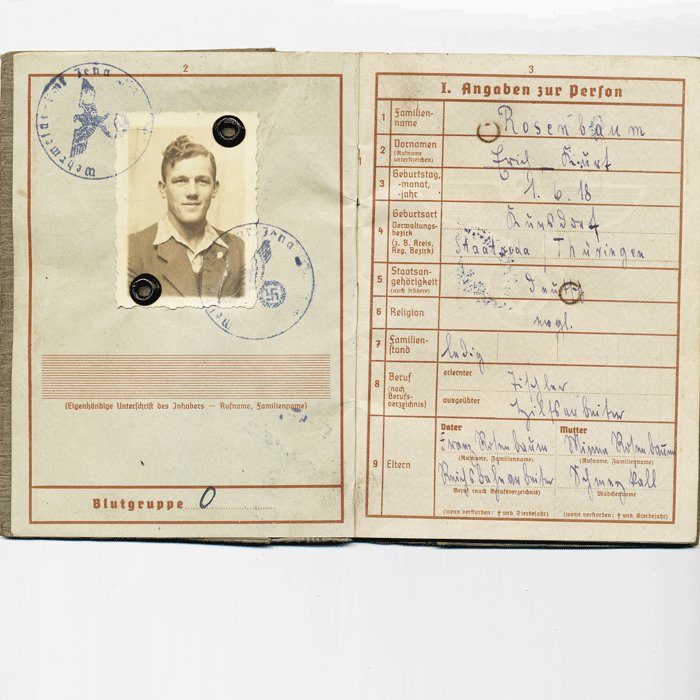 2
Jena
Wehrmeldeamt
Jena
(Eigenhändige Unterschrift des Inhabers — Rufname, Familienname)
Blutgruppe O
3
I. Angaben zur Person
1 Familienname Rosenbaum
2 Vornamen (Rufname unterstreichen) Erich Kurt
3 Geburtstag, -monat, -jahr 1. 6. 18
4 Geburtsort
Verwaltungsbezirk (z. B. Kreis, Reg. Bezirk) Thüringen
5 Staatsangehörigkeit (auch frühere)
6 Religion evgl.
7 Familienstand ledig
8 Beruf (nach Berufsverzeichnis)
erlernter Tischler
ausgeübter Hilfsarbeiter
9 Eltern
Vater Mutter
Rosenbaum Minna Rosenbaum
(Rufname, Familienname) (Rufname, Familienname)
Reichsbahnarbeiter
Beruf (nach Berufsverzeichnis) Mädchenname
(wenn verstorben: † und Sterbejahr) (wenn verstorben: † und Sterbejahr)